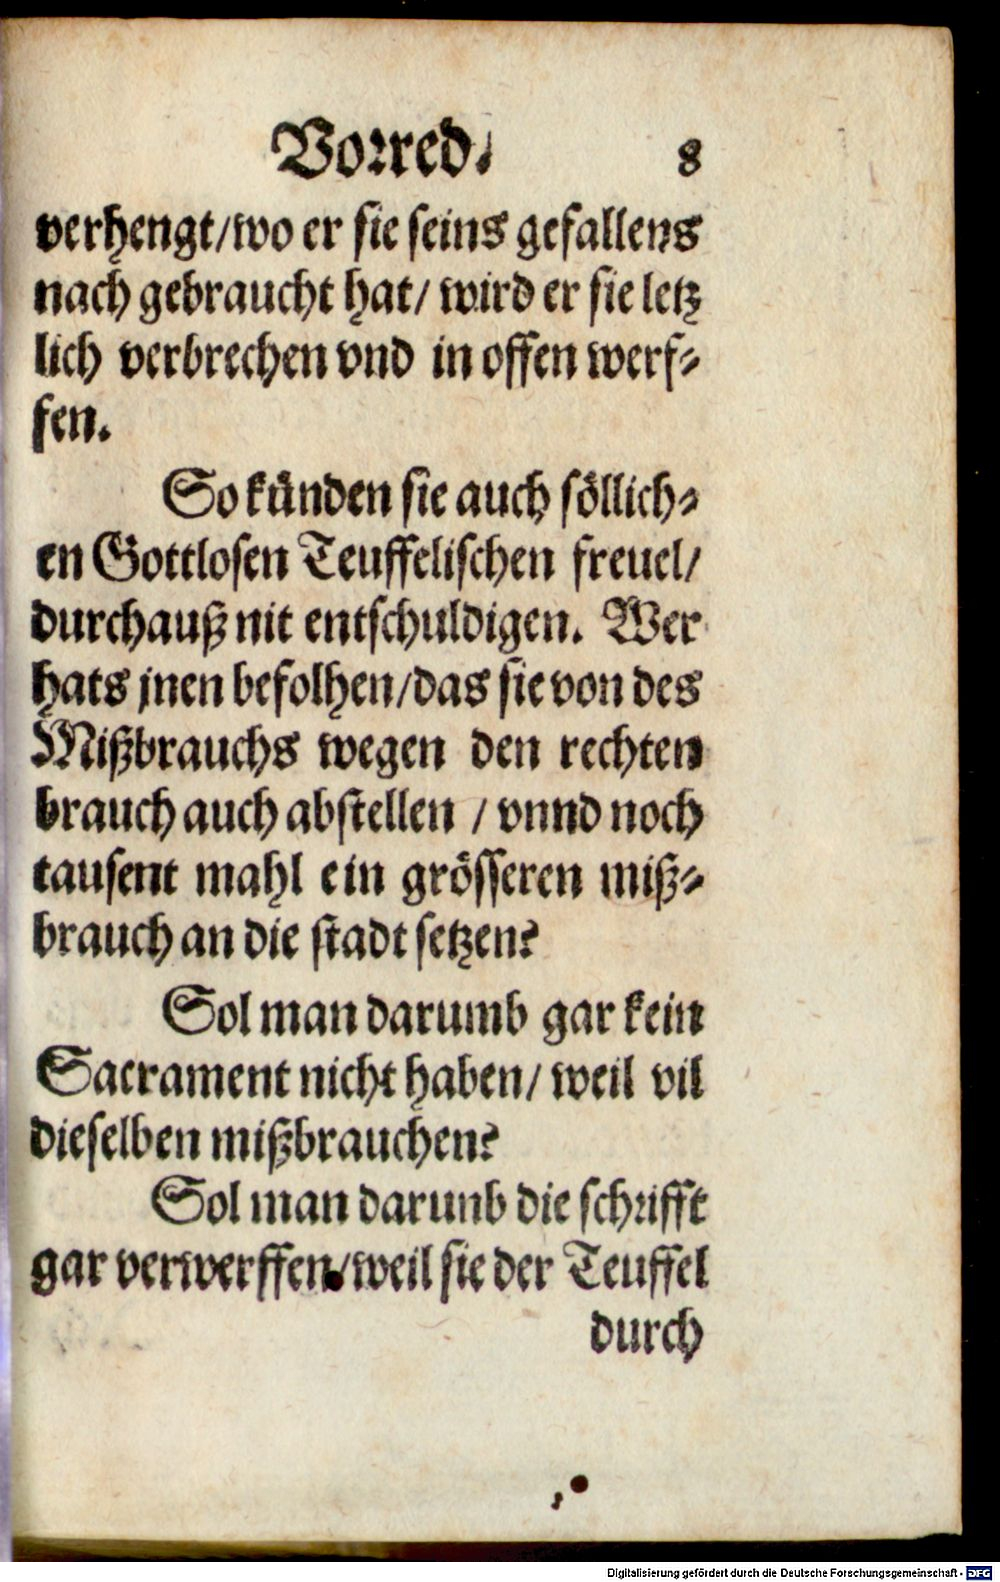 Vorred. 8
verhengt/wo er sie seins gefallens
nach gebraucht hat/ wird er sie letz
lich verbrechen vnd in offen werf-
fen.
So künden sie auch söllich-
en Gottlosen Teuffelischen freuel/
durchauß nit entschuldigen. Wer
hats jnen befolhen/das sie von des
Mißbrauchs wegen den rechten
brauch auch abstellen / vnnd noch
tausent mahl ein grösseren miß-
brauch an die stadt setzen?
Sol man darumb gar kein
Sacrament nicht haben/ weil vil
dieselben mißbrauchen?
Sol man darunb die schrifft
gar verwerffen/weil sie der Teuffel
durch
Digitalisierung gefördert durch die Deutsche Forschungsgemeinschaft - DFG